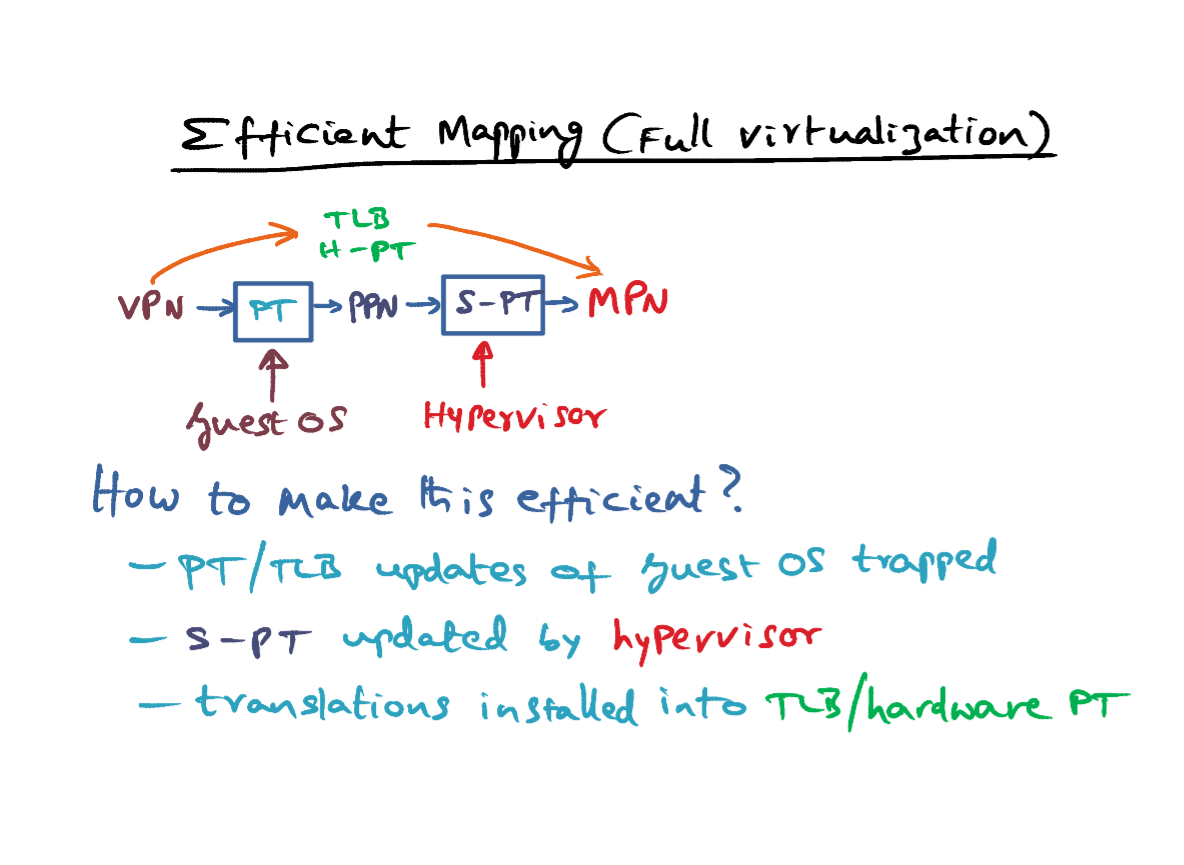 Efficient Mapping (Full virtualization)
TLB
H-PT
VPN → PT → PPN → S-PT → MPN
guest OS Hypervisor
How to make this efficient?
— PT/TLB updates of guest OS trapped
— S-PT updated by hypervisor
— translations installed into TLB/hardware PT